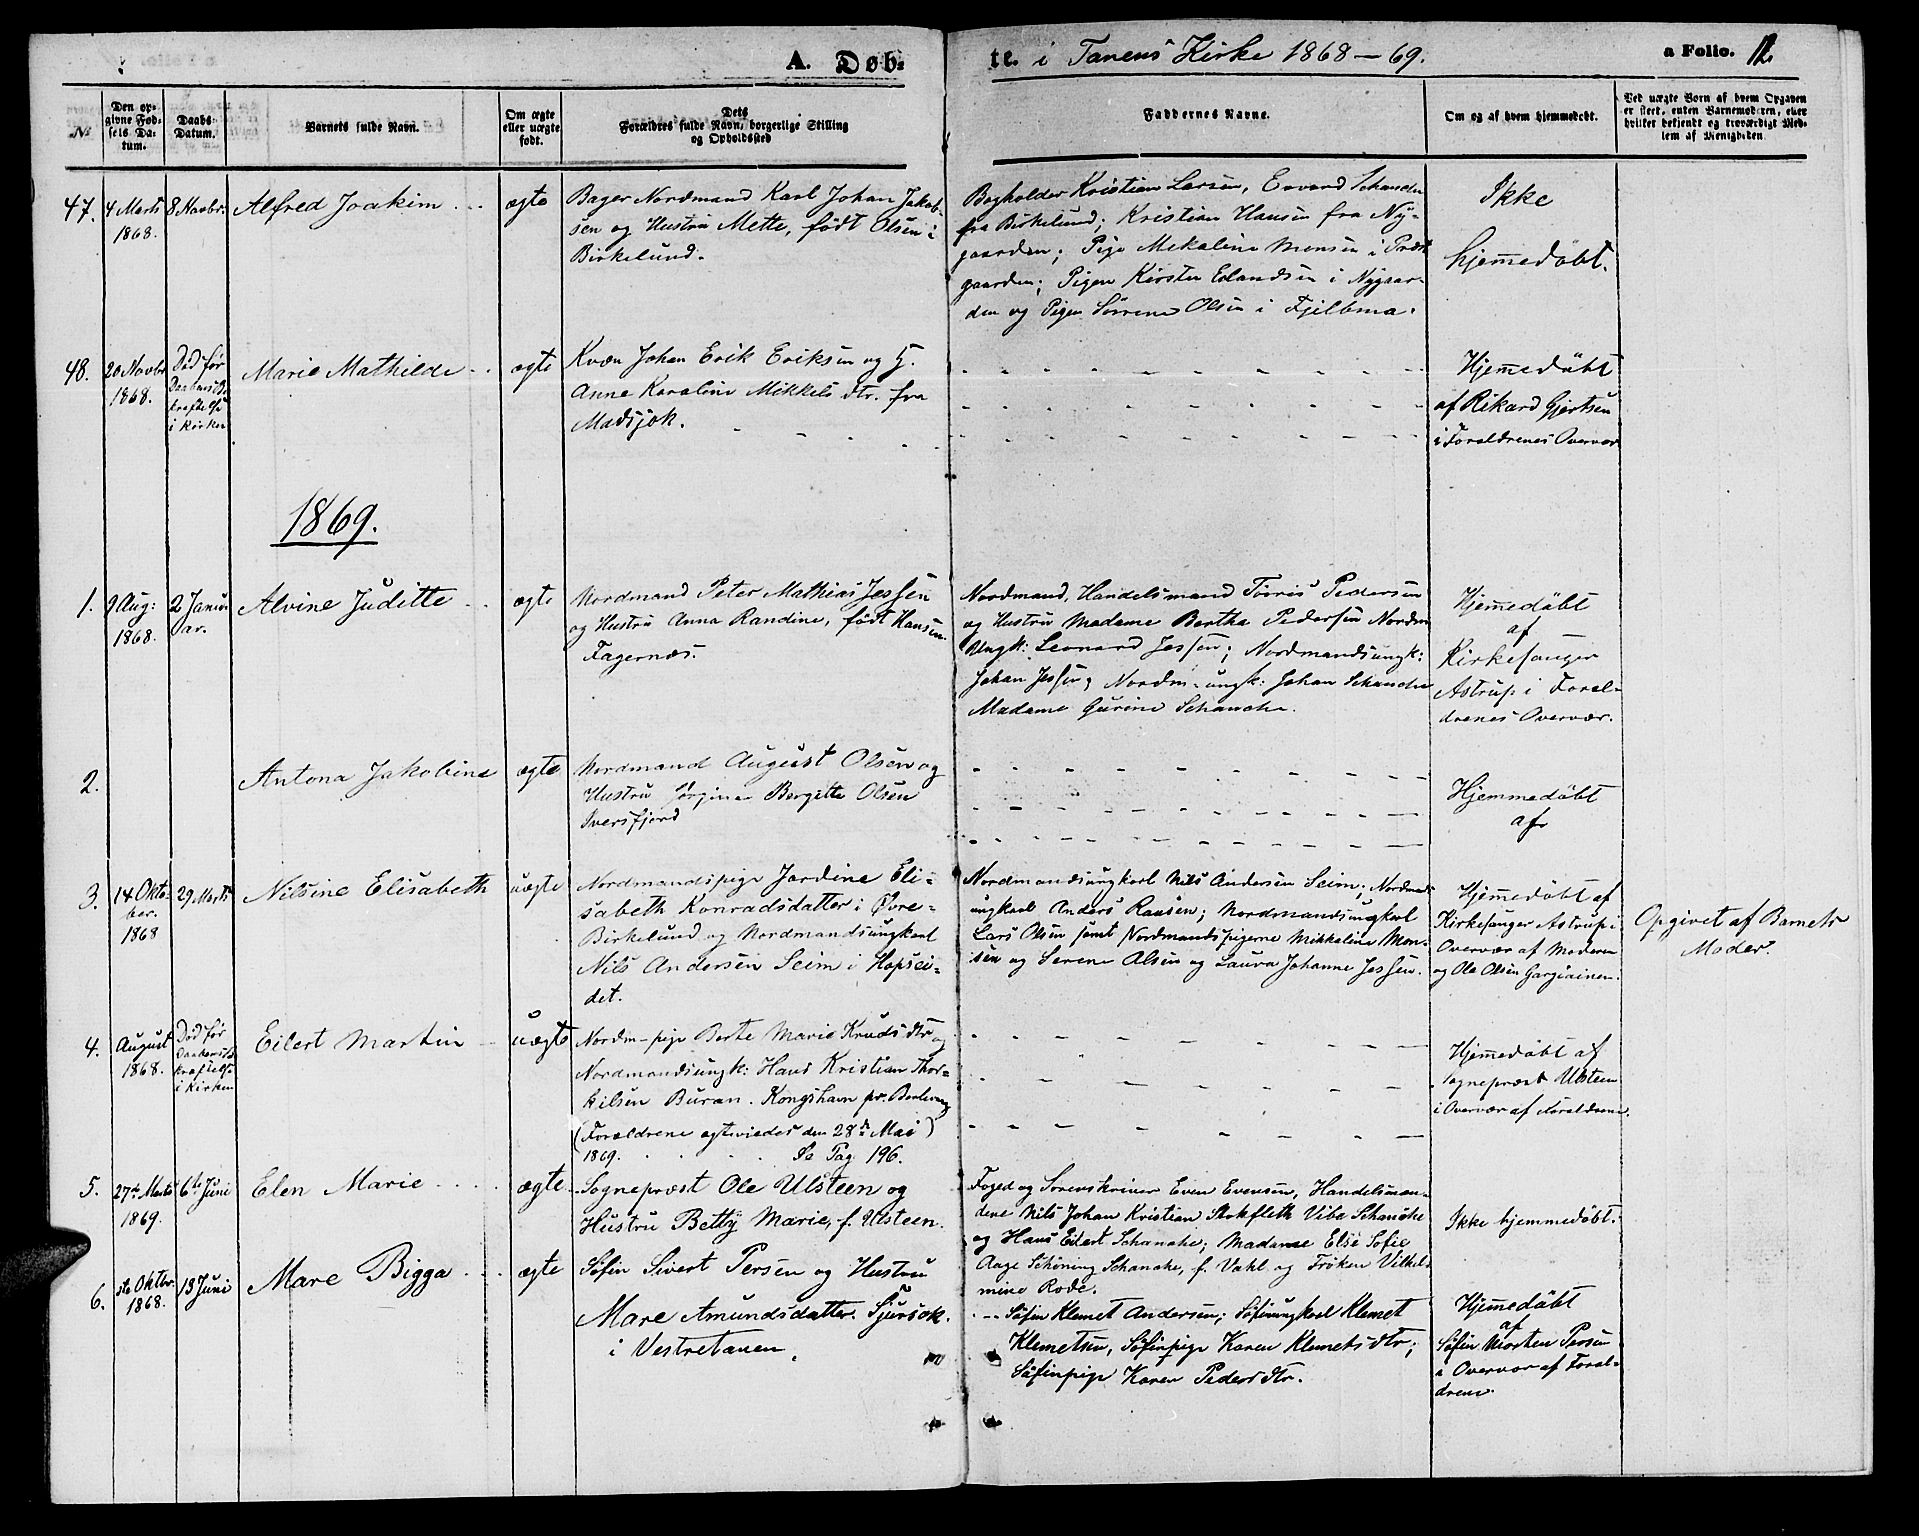 A. Døb=
te. i Tanens Kirke 1868 – 69.
a Folio. 12.
No
Den op=
givne Fød=
sels Da=
tum.
Daabs=
Datum.
Barnets fulde Navn.
Om ægte
eller uægte
født.
Dets
Forældres fulde Navn, borgerlige Stilling
og Opholdssted
Faddernes Navne.
Om og af hvem hjemmedøbt.
Ved uægte Børn af hvem Opgaven
er skeet, enten Barnemoderen, eller
hvilket bekjendt og troværdigt Med=
lem af Menigheden.
47.
4 Marts
1868.
8 Novbr
Alfred Joakim
ægte
Bager Nordmand Karl Johan Jakob-
sen og Hustru Mette, født Olsen i
Birkelund.
Bogholder Kristian Larsen, Edvard Schanche
fra Birkelund; Kristian Hansen fra Ny-
gaarden; Pige Mekaline Monsen i Præst
gaarden; Pigen Kirsten Erlandsen i Nygaar-
den og Pigen Sørrene Olsen i Fjelbma.
Ikke
hjemmedøbt.
48.
20 Novbr
1868.
Død før
Daabens Be
kræftelse
i Kirken
Marie Mathilde
ægte
Kvæn Johan Erik Eriksen og H.
Anne Karoline Mikkels dtr. fra
Madsjok.
Hjemmedøbt
af Rikard Gjertsen
i Forældrenes Overvær
1869.
1.
9 Aug:
1868.
2 Janu
ar.
Alvine Juditte
ægte
Nordmand Peter Mathias Jessen
og Hustru Anna Randine, født Hansen.
Fagernæs.
Nordmand, Handelsmand Torris Pedersen
og Hustru Madame Bertha Pedersen Nordm
Ungk: Leonard Jessen; Nordmandsungk:
Johan Jessen, Nordm-ungk: Johan Schanche
Madame Gurine Schanche.
Hjemmedøbt
af
Kirkesanger
Astrup i Foræl-
drenes Overvær.
2.
Antona Jakobine
ægte
Nordmand August Olsen og
Hustru Jørgine Bergitte Olsen
Iversfjord
Hjemmedøbt
af
3.
14 Okto-
ber.
1868
29 Marts
Nilsine Elisabeth
uægte
Nordmandspige Jordine Eli-
sabeth Konradsdatter i Øvre-
Birkelund og Nordmandsungkarl
Nils Andersen Seim i Hopsei-
det.
Nordmandsungkarl Nils Andersen Seim; Nordmands
ungkarl Anders Rausen; Nordmandsungkarl
Lars Olsen samt Nordmandspigerne Mikkaline Mon-
sen og Serene Olsen og Laura Johanne Jessen.
Hjemmedøbt af
Kirkesanger Astrup i
Overvær af Moderen
og Ole Olsen Gargiainen.
Opgivet af Barnets
Moder.
4.
August
1868.
Død før
Daabens Be
kræftelse
i Kirken
Eilert Martin
uægte
Nordm-pige Berte Marie Knuds dtr og
Nordmandsungk: Hans Kristian Thor-
kilsen Buran. Kongshavn pr. Berlevaag
(Forældrene ægteviedes den 28de Mai)
1869. Se Pag 196.
Hjemmedøbt af
Sognepræst Ulsteen
i Overvær af Forældrene.
5.
27de Marts
1869.
6te Juni
Elen Marie
ægte
Sognepræst Ole Ulsteen og
Hustru Betty Marie, f. Ulsteen.
Foged og Sorenskriver Even Evensen, Handelsmæn-
dene Nils Johan Kristian Stokfleth Vibe Schanche
og Hans Eilert Schanche; Madame Else Sofie
Aage Schøning Schanche, f. Vahl og Frøken Vilhel
mine Rode.
Ikke hjemmedøbt.
6.
ste Oktbr.
1868.
13 Juni
Mare Bigga
ægte
Søfin Sivert Persen og Hustru
Mare Amundsdatter. Sjursok.
i Vestretanen.
Søfin Klemet Andersen; Søfinungkarl Klemet
Klemetsen, Søfinpige Karen Klemets dtr;
Søfinpige Karen Peders dtr.
Hjemmedøbt
af
Søfin Morten Persen
i Overvær af Foræl-
drene.